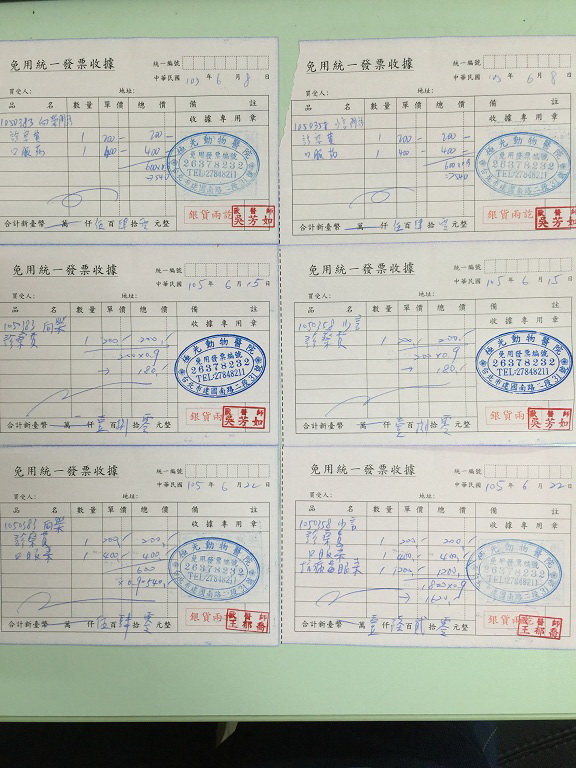 免用統一發票收據
統一編號
中華民國 105 年 6 月 8 日
買受人： 地址：
品 名 數量 單價 總價 備 註
1050383 向榮 收據專用章
診察費 1 200- 200-
口服葯 1 400- 400-
600x0.9
=540
極光動物醫院
免用發票編號
26378232
TEL:27848211
台北市建國南路二段31號
合計新臺幣 萬 仟 伍 百 肆 拾 零 元整
銀貨兩訖
獸醫師
吳芳如
免用統一發票收據
統一編號
中華民國 105 年 6 月 8 日
買受人： 地址：
品 名 數量 單價 總價 備 註
1050358 收據專用章
診察費 1 200- 200-
口服葯 1 400- 400-
600x0.9
=540
極光動物醫院
免用發票編號
26378232
TEL:27848211
台北市建國南路二段31號
合計新臺幣 萬 仟 伍 百 肆 拾 零 元整
銀貨兩訖
獸醫師
吳芳如
免用統一發票收據
統一編號
中華民國 105 年 6 月 15 日
買受人： 地址：
品 名 數量 單價 總價 備 註
1050383 向榮 收據專用章
診察費 1 200 200
200x0.9
→ 180
極光動物醫院
免用發票編號
26378232
TEL:27848211
台北市建國南路二段31號
合計新臺幣 萬 仟 壹 百 捌 拾 零 元整
銀貨兩
獸醫師
吳芳如
免用統一發票收據
統一編號
中華民國 105 年 6 月 15 日
買受人： 地址：
品 名 數量 單價 總價 備 註
1050358 少言 收據專用章
診察費 1 200 200
200x0.9
→ 180
極光動物醫院
免用發票編號
26378232
TEL:27848211
台北市建國南路二段31號
合計新臺幣 萬 仟 壹 百 捌 拾 零 元整
銀貨兩
獸醫師
吳芳如
免用統一發票收據
統一編號
中華民國 105 年 6 月 22 日
買受人： 地址：
品 名 數量 單價 總價 備 註
1050383 向榮 收據專用章
診察費 1 200 200
口服藥 1 400 400
600
x0.9=540
極光動物醫院
免用發票編號
26378232
TEL:27848211
台北市建國南路二段31號
合計新臺幣 萬 仟 伍 百 肆 拾 零 元整
銀貨兩
獸醫師
王郁喬
免用統一發票收據
統一編號
中華民國 105 年 6 月 22 日
買受人： 地址：
品 名 數量 單價 總價 備 註
1050358 少言 收據專用章
診察費 1 200 200
口服藥 1 400 400
抗病毒眼藥 1 1200 1200
1800x0.9
→ 1620
極光動物醫院
免用發票編號
26378232
TEL:27848211
台北市建國南路二段31號
合計新臺幣 萬 壹 仟 陸 百 貳 拾 零 元整
銀貨兩
獸醫師
王郁喬